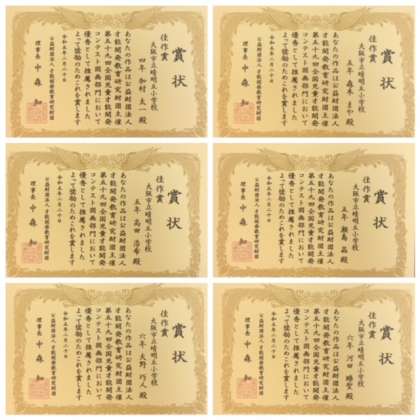 賞状
佳作賞
大阪市立晴明丘小学校
四年 太一 殿
あなたの作品は公益財団法人
才能開発教育研究財団主催
第五十九回全国児童才能開発
コンテスト図画部門において
優秀として推薦されました
よって奨励のためこれを賞します
公益財団法人才能開発教育研究財団
理事長 中森 知
賞状
佳作賞
大阪市立晴明丘小学校
五年 森本 殿
あなたの作品は公益財団法人
才能開発教育研究財団主催
第五十九回全国児童才能開発
コンテスト図画部門において
優秀として推薦されました
よって奨励のためこれを賞します
公益財団法人才能開発教育研究財団
理事長 中森 知
賞状
佳作賞
大阪市立晴明丘小学校
五年 高田 殿
あなたの作品は公益財団法人
才能開発教育研究財団主催
第五十九回全国児童才能開発
コンテスト図画部門において
優秀として推薦されました
よって奨励のためこれを賞します
公益財団法人才能開発教育研究財団
理事長 中森 知
賞状
佳作賞
大阪市立晴明丘小学校
五年 殿
あなたの作品は公益財団法人
才能開発教育研究財団主催
第五十九回全国児童才能開発
コンテスト図画部門において
優秀として推薦されました
よって奨励のためこれを賞します
公益財団法人才能開発教育研究財団
理事長 中森 知
賞状
佳作賞
大阪市立晴明丘小学校
六年 大野 殿
あなたの作品は公益財団法人
才能開発教育研究財団主催
第五十九回全国児童才能開発
コンテスト図画部門において
優秀として推薦されました
よって奨励のためこれを賞します
公益財団法人才能開発教育研究財団
理事長 中森 知
賞状
佳作賞
大阪市立晴明丘小学校
六年 河口 殿
あなたの作品は公益財団法人
才能開発教育研究財団主催
第五十九回全国児童才能開発
コンテスト図画部門において
優秀として推薦されました
よって奨励のためこれを賞します
公益財団法人才能開発教育研究財団
理事長 中森 知